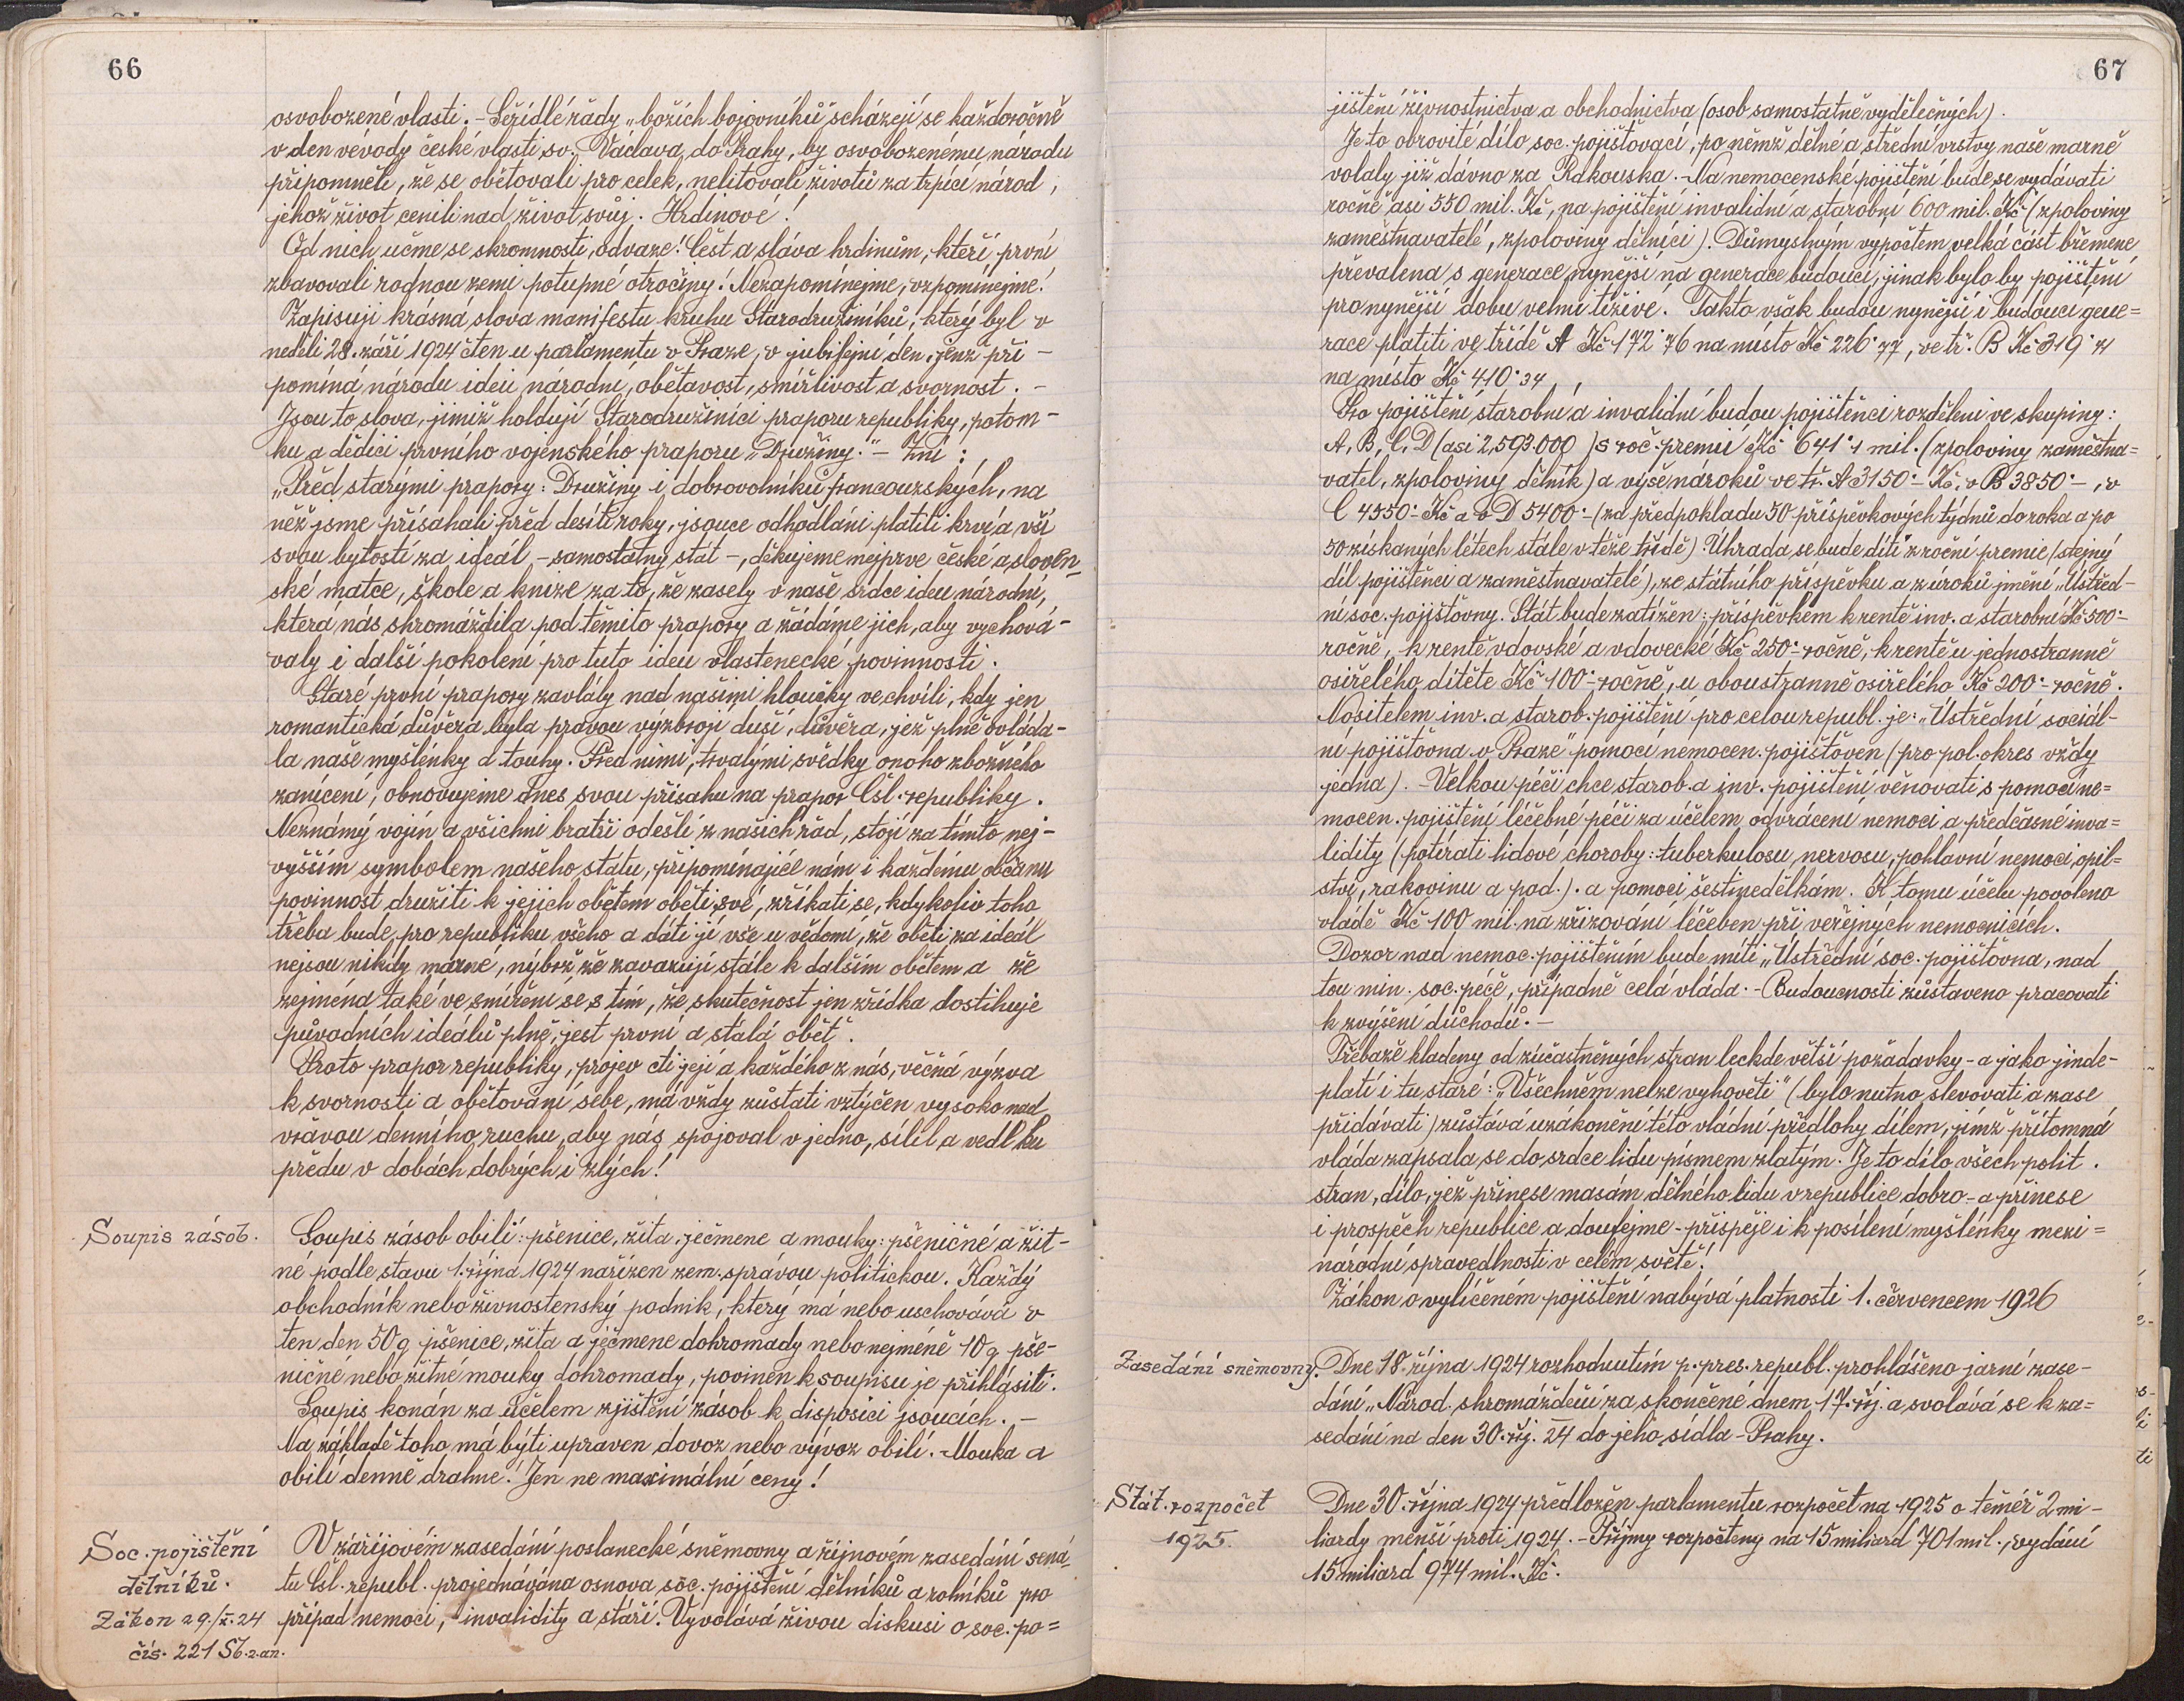 66
osvobozené vlasti. - Seřídlé řady „božích bojovníků" scházejí se každoročně
v den vévody české vlasti sv. Václava do Prahy, by osvobozenému národu
připomněli, že se obětovali pro celek, nelitovali životů za trpící národ,
jehož život cenili nad život svůj. Hrdinové!
Od nich učme se skromnosti, odvaze! Čest a sláva hrdinům, kteří první
zbavovali rodnou zemi potupné otročiny! Nezapomínejme, vzpomínejme!
Zapisuji krásná slova manifestu kruhu Starodružiníků, který byl v
neděli 28. září 1924 čten u parlamentu v Praze, v jubilejní den, jenž při-
pomíná národu ideu národní, obětavost, smířlivost a svornost. -
Jsou to slova, jimiž holdují Starodružiníci praporu republiky, potom-
ku a dědici prvního vojenského praporu „Družiny." - Zní:
„Před starými prapory: Družiny i dobrovolníků francouzských, na
něž jsme přísahali před desíti roky, jsouce odhodláni platiti krví a vší
svou bytostí za ideál - samostatný stát -, děkujeme nejprve české a sloven-
ské matce, škole a knize za to, že zasely v naše srdce ideu národní,
která nás shromáždila pod těmito prapory a žádáme jich, aby vychová-
valy i další pokolení pro tuto ideu vlastenecké povinnosti.
Staré první prapory zavlály nad našimi hloučky ve chvíli, kdy jen
romantická důvěra byla pravou výzbrojí duší, důvěra, jež plně ovláda-
la naše myšlénky a touhy. Před nimi, trvalými svědky onoho zbožného
zanícení, obnovujeme dnes svou přísahu na prapor Čsl. republiky.
Neznámý vojín a všichni bratři odešlí z našich řad, stojí za tímto nej-
vyšším symbolem našeho státu, připomínajíce nám i každému občanu
povinnost družiti k jejich obětem oběti své, zříkati se, kdykoliv toho
třeba bude, pro republiku všeho a dáti jí vše u vědomí, že oběti za ideál
nejsou nikdy marné, nýbrž že zavazují stále k dalším obětem a že
zejména také ve smíření se s tím, že skutečnost jen zřídka dostihuje
původních ideálů plně, jest první a stálá oběť.
Proto prapor republiky, projev cti její a každého z nás, věčná výzva
k svornosti a obětování sebe, má vždy zůstati vztyčen vysoko nad
vřavou denního ruchu, aby nás spojoval v jedno, sílil a vedl ku
předu v dobách dobrých i zlých!
Soupis zásob.
Soupis zásob obilí: pšenice, žita, ječmene a mouky: pšeničné a žit-
né podle stavu 1. října 1924 nařízen zem. správou politickou. Každý
obchodník nebo živnostenský podnik, který má nebo uschovává v
ten den 50 q pšenice, žita a ječmene dohromady nebo nejméně 10 q pše-
ničné nebo žitné mouky dohromady, povinen k soupisu je přihlásiti.
Soupis konán za účelem zjištění zásob k disposici jsoucích. -
Na základě toho má býti upraven dovoz nebo vývoz obilí. Mouka a
obilí denně drahne! Jen ne maximální ceny!
Soc. pojištění
dělníků.
Zákon 29./X. 24
čís. 221 Sb. z. a n.
V zářijovém zasedání poslanecké sněmovny a říjnovém zasedání sená-
tu čsl. republ. projednávána osnova soc. pojištění dělníků a rolníků pro
případ nemoci, invalidity a stáří. Vyvolává živou diskusi o soc. po=
67
jištění živnostnictva a obchodnictva (osob samostatně výdělečných).
Je to obrovité dílo soc. pojišťovací, po němž dělné a střední vrstvy naše marně
volaly již dávno za Rakouska. - Na nemocenské pojištění bude se vydávati
ročně asi 550 mil. Kč, na pojištění invalidní a starobní 600 mil. Kč (zpoloviny
zaměstnavatelé, zpoloviny dělníci). Důmyslným výpočtem velká část břemene
převalena s generace nynější na generace budoucí, jinak bylo by pojištění
pro nynější dobu velmi tíživé. Takto však budou nynější i budoucí gene=
race platiti ve třídě A Kč 172·76 na místo Kč 226·77, ve tř. B Kč 319·
na místo Kč 410·34
Pro pojištění starobní a invalidní budou pojištěnci rozděleni ve skupiny:
A, B, C, D (asi 2,593.000) s roč. premií Kč 641·1 mil. (zpoloviny zaměstna=
vatel, zpoloviny dělník) a výše nároků ve tř. A 3150·- Kč, v B 3850·-, v
C 4550·- Kč a v D 5400·- (za předpokladu 50 příspěvkových týdnů do roka a po
50 získaných létech stále v téže třídě). Úhrada se bude díti z roční premie (stejný
díl pojištěnci a zaměstnavatelé), ze státního příspěvku a z úroků jmění „Ústřed-
ní soc. pojišťovny. Stát bude zatížen: příspěvkem k rentě inv. a starobní Kč 500·-
ročně, k rentě vdovské a vdovecké Kč 250·- ročně, k rentě u jednostranně
osiřelého dítěte Kč 100·- ročně, u oboustranně osiřelého Kč 200·- ročně.
Nositelem inv. a starob. pojištění pro celou republ. je: „Ústřední sociál-
ní pojišťovna v Praze" pomocí nemocen. pojišťoven (pro pol. okres vždy
jedna). - Velkou péči chce starob. a inv. pojištění věnovati s pomocí ne=
mocen. pojištění léčebné péči za účelem odvrácení nemoci a předčasné inva=
lidity (potírati lidové choroby: tuberkulosu, nervosu, pohlavní nemoci, opil=
ství, rakovinu a pod.). a pomoci šestinedělkám. K tomu účelu povoleno
vládě Kč 100 mil. na zřizování léčeben při veřejných nemocnicích.
Dozor nad nemoc. pojištěním bude míti „Ústřední soc. pojišťovna, nad
tou min. soc. péče, případně celá vláda. - Budoucnosti zůstaveno pracovati
k zvýšení důchodů. -
Třebaže kladeny od zúčastněných stran leckde větší požadavky - a jako jinde-
platí i tu staré: „Všechněm nelze vyhověti" (bylo nutno slevovati a zase
přidávati) zůstává uzákonění této vládní předlohy dílem, jímž přítomná
vláda zapsala se do srdce lidu písmem zlatým. Je to dílo všech polit.
stran, dílo, jež přinese masám dělného lidu v republice dobro - a přinese
i prospěch republice a doufejme - přispěje i k posílení myšlénky mezi=
národní spravedlnosti v celém světě!
Zákon o vylíčeném pojištění nabývá platnosti 1. červencem 1926
Zasedání sněmovny.
Dne 18. října 1924 rozhodnutím p. pres. republ. prohlášeno jarní zase-
dání „Národ. shromáždění za skončené dnem 17. říj. a svolává se k za=
sedání na den 30. říj. 24 do jeho sídla - Prahy.
Stát. rozpočet
1925.
Dne 30. října 1924 předložen parlamentu rozpočet na 1925 o téměř 2 mi-
liardy menší proti 1924. - Příjmy rozpočteny na 15 miliard 701 mil., vydání
15 miliard 974 mil. Kč.